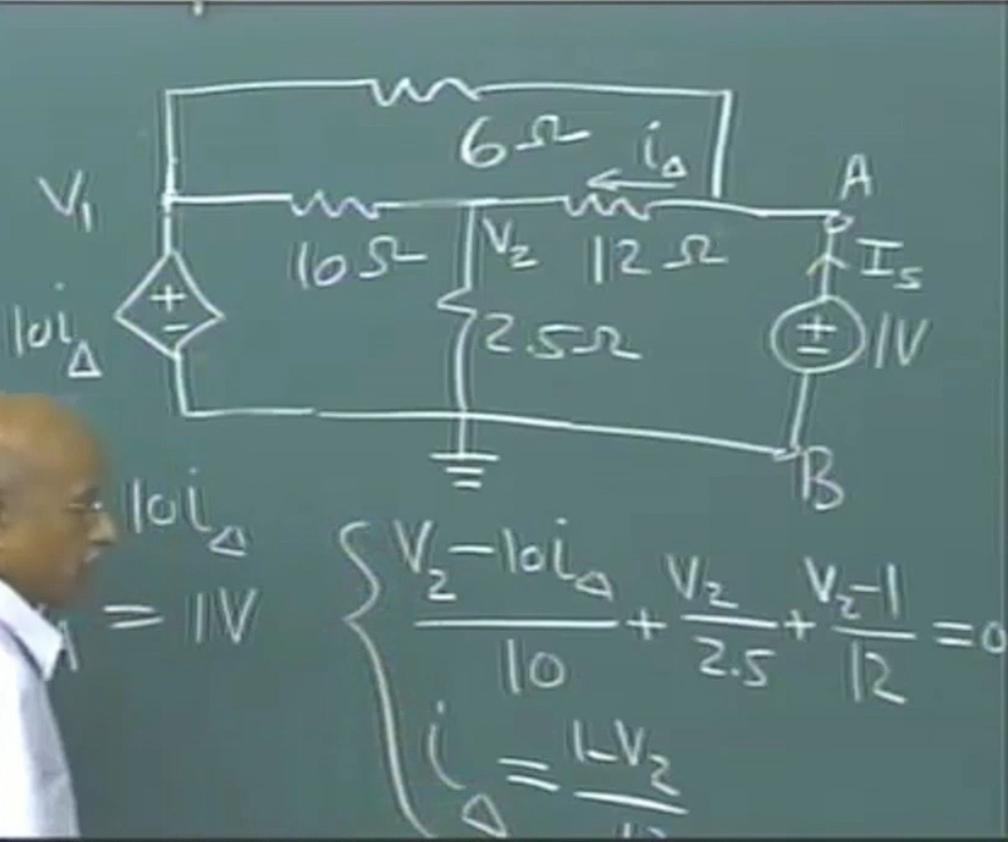 6Ω
i_Δ
A
V₁
10Ω
V₂
12Ω
I_s
10i_Δ
2.5Ω
+
-
+
-
1V
B
10i_Δ
= 1V
{ (V₂-10i_Δ)/10 + V₂/2.5 + (V₂-1)/12 = 0
i_Δ = 1-V₂